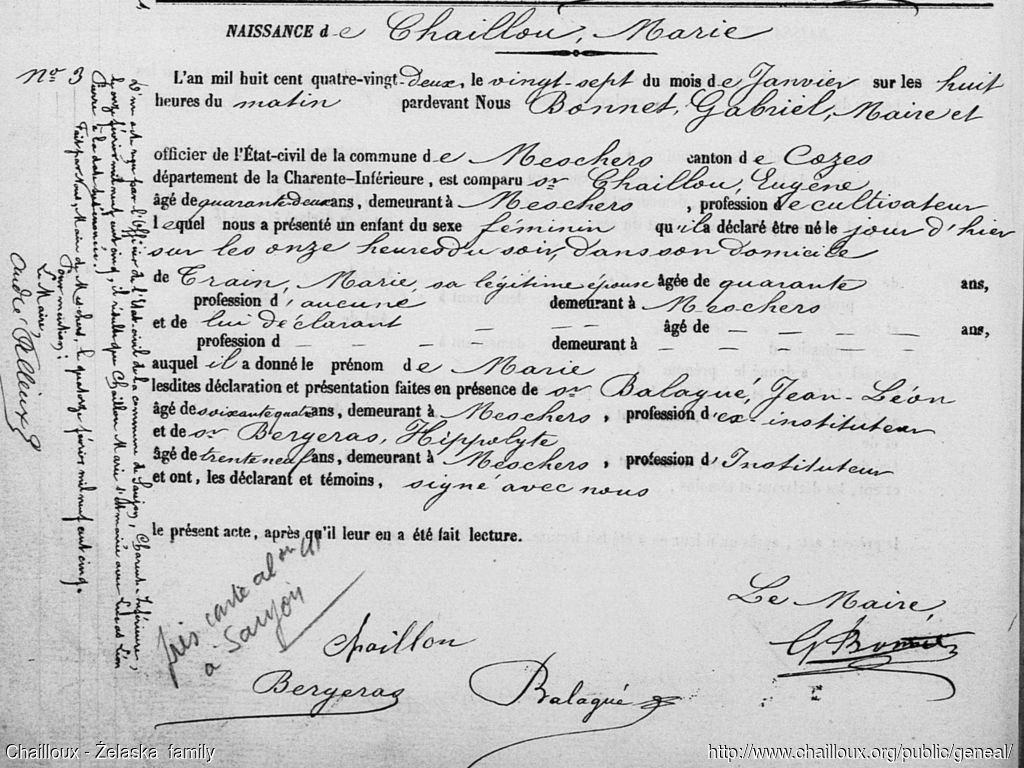 NAISSANCE de Chaillou, Marie
No 3
L'an mil huit cent quatre-vingt-deux, le vingt-sept du mois de Janvier sur les huit
heures du matin pardevant Nous Bonnet, Gabriel, Maire et
officier de l'État-civil de la commune de Meschers canton de Cozes
département de la Charente-Inférieure, est comparu sr Chaillou, Eugène
âgé de quarante deux ans, demeurant à Meschers, profession de cultivateur
lequel nous a présenté un enfant du sexe féminin qu'il a déclaré être né le jour d'hier
sur les onze heures du soir, dans son domicile
de Train, Marie, sa légitime épouse âgée de quarante ans,
profession d'aucune demeurant à Meschers
et de lui déclarant — — — âgé de — — — ans,
profession d — — — — demeurant à — — — —
auquel il a donné le prénom de Marie
lesdites déclaration et présentation faites en présence de sr Balagué, Jean-Léon
âgé de soixante quatre ans, demeurant à Meschers, profession d'ex-instituteur
et de sr Bergeras, Hippolyte
âgé de trente neuf ans, demeurant à Meschers, profession d'Instituteur
et ont, les déclarant et témoins, signé avec nous
le présent acte, après qu'il leur en a été fait lecture.
D'un acte reçu par l'Officier de l'Etat-civil de la commune de Saujon, Charente-Inférieure,
le onze février mil neuf cent cinq, il résulte que Chaillou Marie s'est mariée avec Léon
Pierre à la date susénoncée.
Fait par nous, Maire de Meschers, le quatorze février mil neuf cent cinq.
Pour mention:
Le Maire,
carte al
à Saujon
Le Maire,
G Bonnet
Chaillou
Bergeras
Balagué
Chailloux - Želaska family
http://www.chailloux.org/public/geneal/